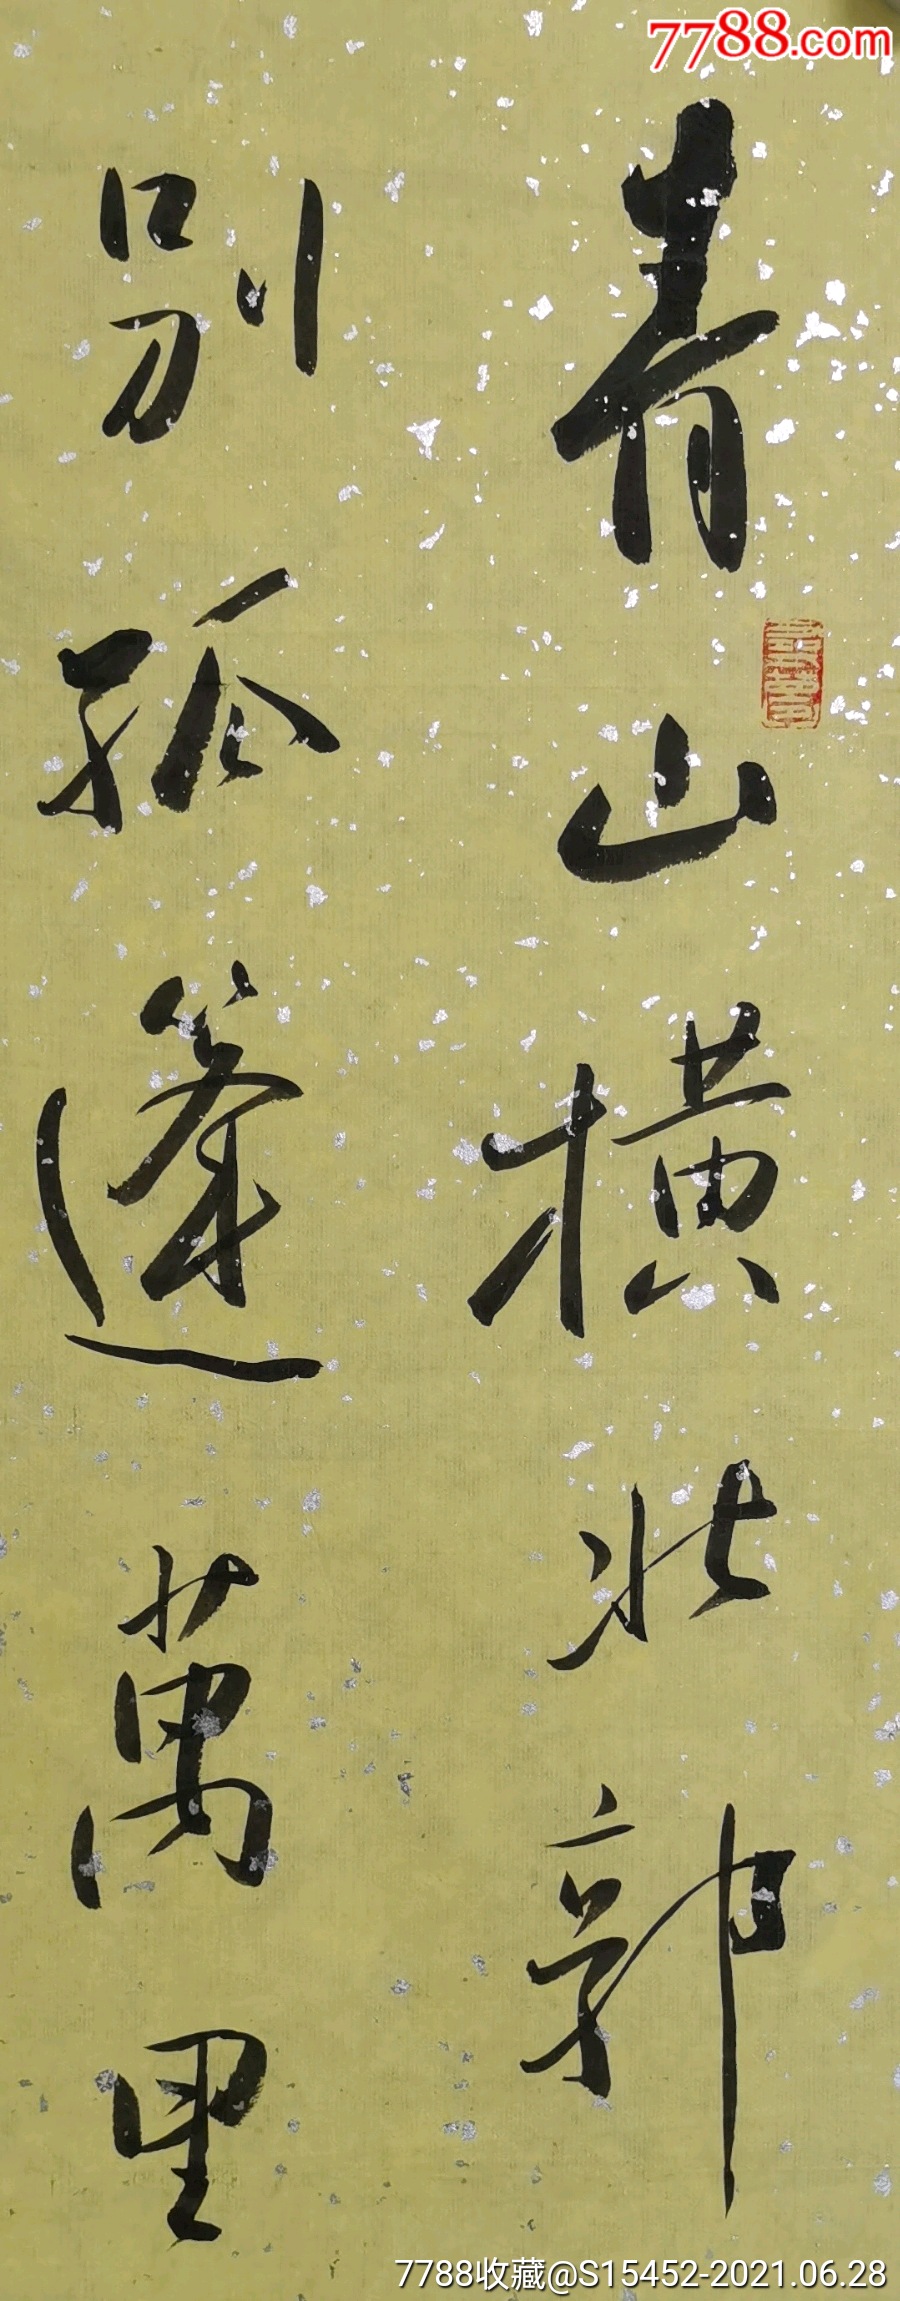 7788.com
青山橫北郭
別孤篷萬里
7788收藏@S15452-2021.06.28